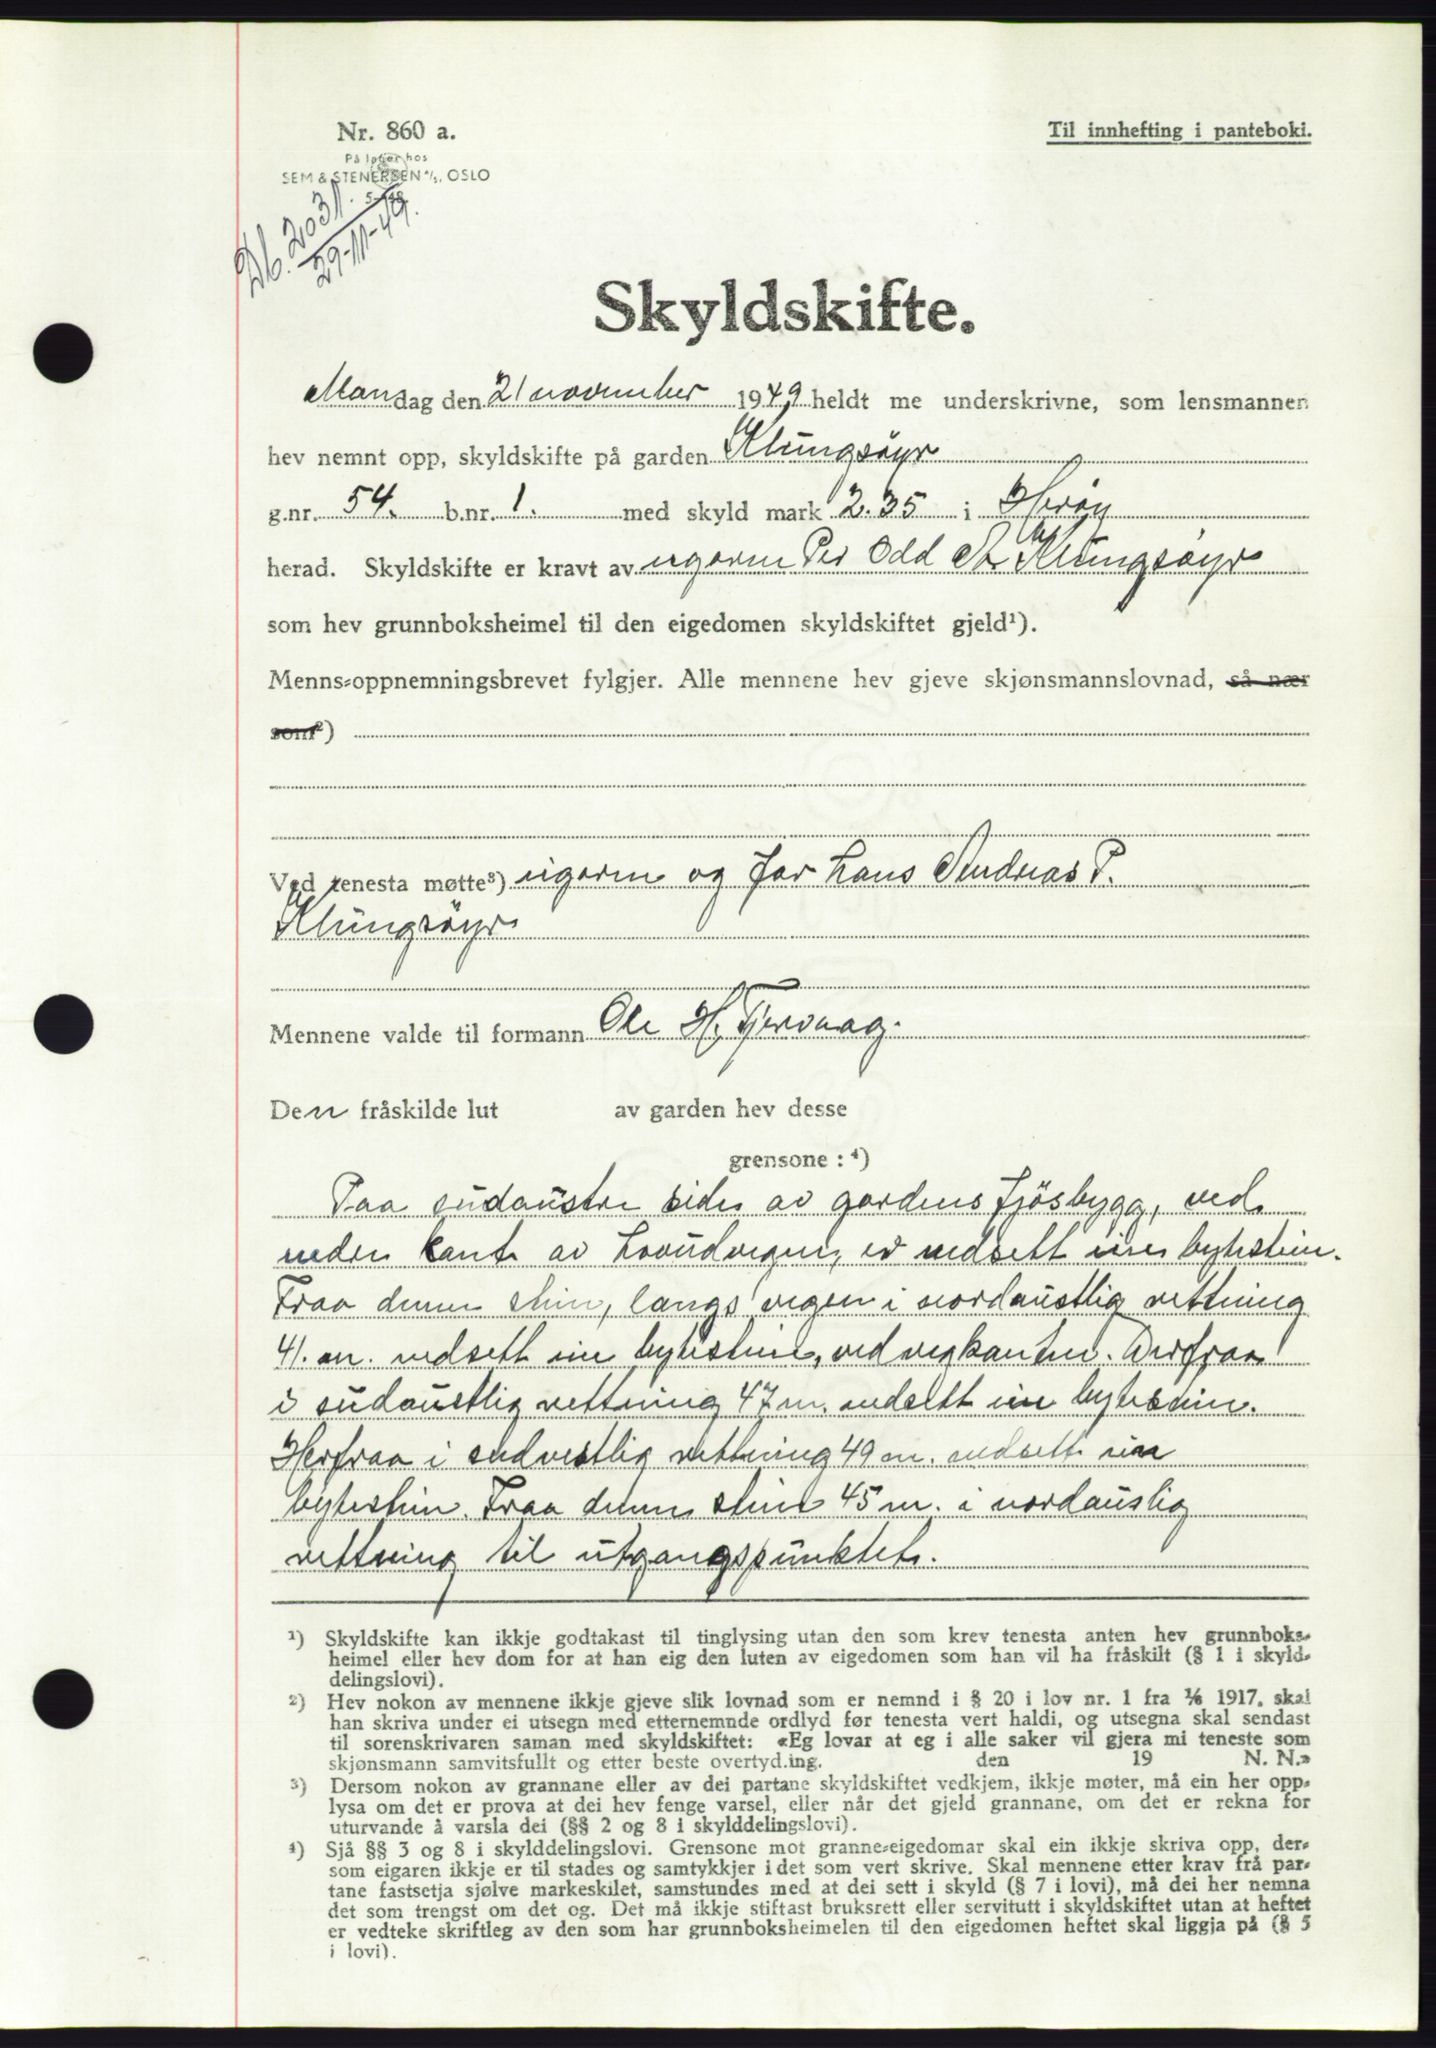 Nr. 860 a.
På lager hos
SEM & STENERSEN A/S, OSLO
5-48.
Til innhefting i panteboki.
Db. 2031.
29-11-49.
Skyldskifte.
Mandag den 21 november 1949 heldt me underskrivne, som lensmannen
hev nemnt opp, skyldskifte på garden Klungsöyr
g.nr. 54. b.nr. 1. med skyld mark 2.35 i Heröy
herad. Skyldskifte er kravt av eigaren Per Odd A. Klungsöyr
som hev grunnboksheimel til den eigedomen skyldskiftet gjeld¹).
Menns-oppnemningsbrevet fylgjer. Alle mennene hev gjeve skjønsmannslovnad, så nær
som²)
Ved tenesta møtte³) eigaren og far hans Andreas P.
Klungsöyr
Mennene valde til formann Ole H. Tjervaag.
Den fråskilde lut av garden hev desse
grensone : ⁴)
Paa sudaustre side av gardens fjösbygg, ved
nedre kant av hovudvegen, er nedsett ein bytestein.
Fraa denne stein, langs vegen i nordaustlig rettning
41. m. nedsett ein bytestein, ved vegkanten. Derfraa
i sudaustlig rettning 47 m. nedsett ein bytestein.
Herfraa i sudvestlig rettning 49 m. nedsett ein
bytestein. Fraa denne stein 45 m. i nordauslig
rettning til utgangspunktet.
¹) Skyldskifte kan ikkje godtakast til tinglysing utan den som krev tenesta anten hev grunnboks-
heimel eller hev dom for at han eig den luten av eigedomen som han vil ha fråskilt (§ 1 i skyld-
delingslovi).
²) Hev nokon av mennene ikkje gjeve slik lovnad som er nemnd i § 20 i lov nr. 1 fra 1/6 1917, skal
han skriva under ei utsegn med etternemnde ordlyd før tenesta vert haldi, og utsegna skal sendast
til sorenskrivaren saman med skyldskiftet: «Eg lovar at eg i alle saker vil gjera mi teneste som
skjønsmann samvitsfullt og etter beste overtyd.ing. den 19 N. N.»
³) Dersom nokon av grannane eller av dei partane skyldskiftet vedkjem, ikkje møter, må ein her opp-
lysa om det er prova at dei hev fenge varsel, eller når det gjeld grannane, om det er rekna for
uturvande å varsla dei (§§ 2 og 8 i skylddelingslovi).
⁴) Sjå §§ 3 og 8 i skylddelingslovi. Grensone mot granne-eigedomar skal ein ikkje skriva opp, der-
som eigaren ikkje er til stades og samtykkjer i det som vert skrive. Skal mennene etter krav frå par-
tane fastsetja sjølve markeskilet, samstundes med at dei sett i skyld (§ 7 i lovi), må dei her nemna
det som trengst om det og. Det må ikkje stiftast bruksrett eller servitutt i skyldskiftet utan at heftet
er vedteke skriftleg av den som har grunnboksheimelen til den eigedomen heftet skal liggja på (§ 5
i lovi).